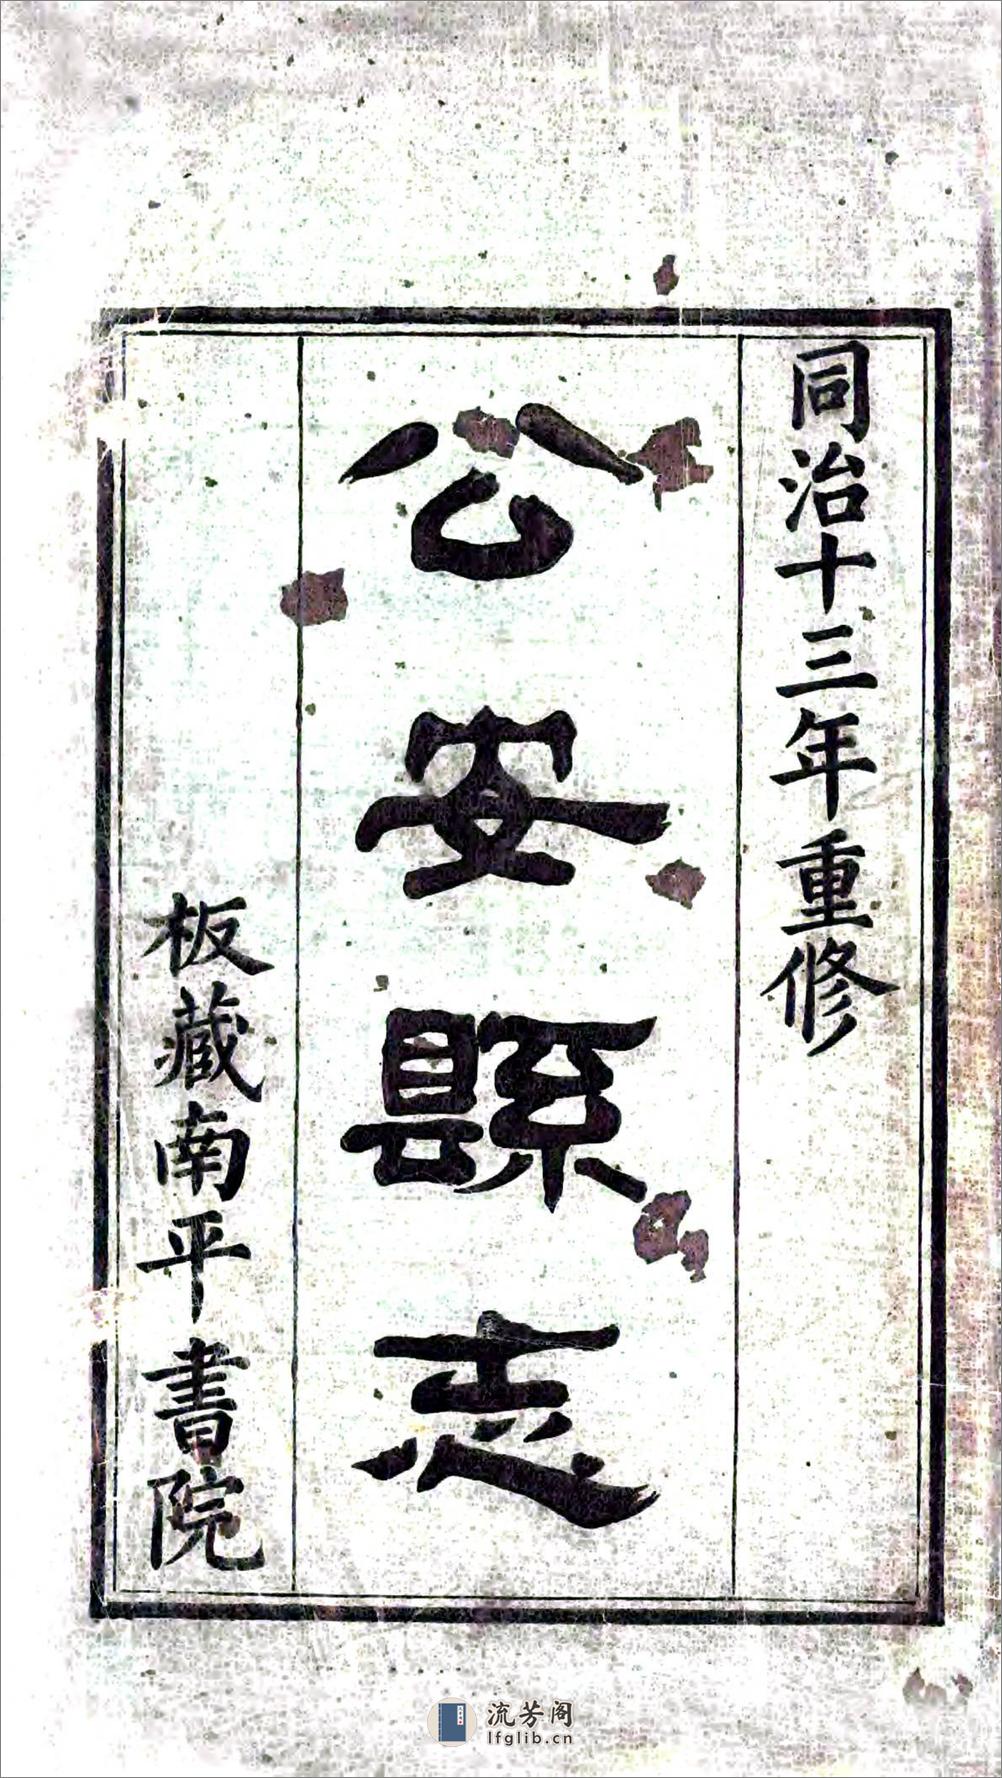 同治十三年重修
公安縣志
板藏南平書院
流芳阁
lfglib.cn